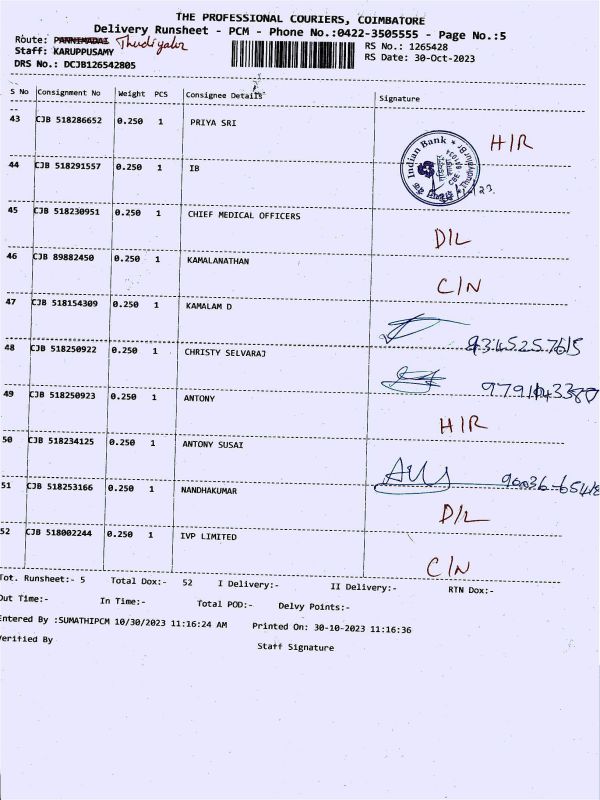 THE PROFESSIONAL COURIERS, COIMBATORE
Delivery Runsheet - PCM - Phone No.:0422-3505555 - Page No.:5
Route: PANNIMADAI Thudiyalur
RS No.: 1265428
Staff: KARUPPUSAMY
RS Date: 30-Oct-2023
DRS No.: DCJB126542805
S No Consignment No Weight PCS Consignee Details Signature
43 CJB 518286652 0.250 1 PRIYA SRI H/R
44 CJB 518291557 0.250 1 IB Indian Bank
45 CJB 518230951 0.250 1 CHIEF MEDICAL OFFICERS D/L
46 CJB 89882450 0.250 1 KAMALANATHAN C/N
47 CJB 518154309 0.250 1 KAMALAM D 9345257615
48 CJB 518250922 0.250 1 CHRISTY SELVARAJ
49 CJB 518250923 0.250 1 ANTONY H/R
50 CJB 518234125 0.250 1 ANTONY SUSAI
51 CJB 518253166 0.250 1 NANDHAKUMAR D/L
52 CJB 518002244 0.250 1 IVP LIMITED C/N
Tot. Runsheet:- 5 Total Dox:- 52 I Delivery:- II Delivery:- RTN Dox:-
Out Time:- In Time:- Total POD:- Delvy Points:-
Entered By :SUMATHIPCM 10/30/2023 11:16:24 AM Printed On: 30-10-2023 11:16:36
Verified By Staff Signature